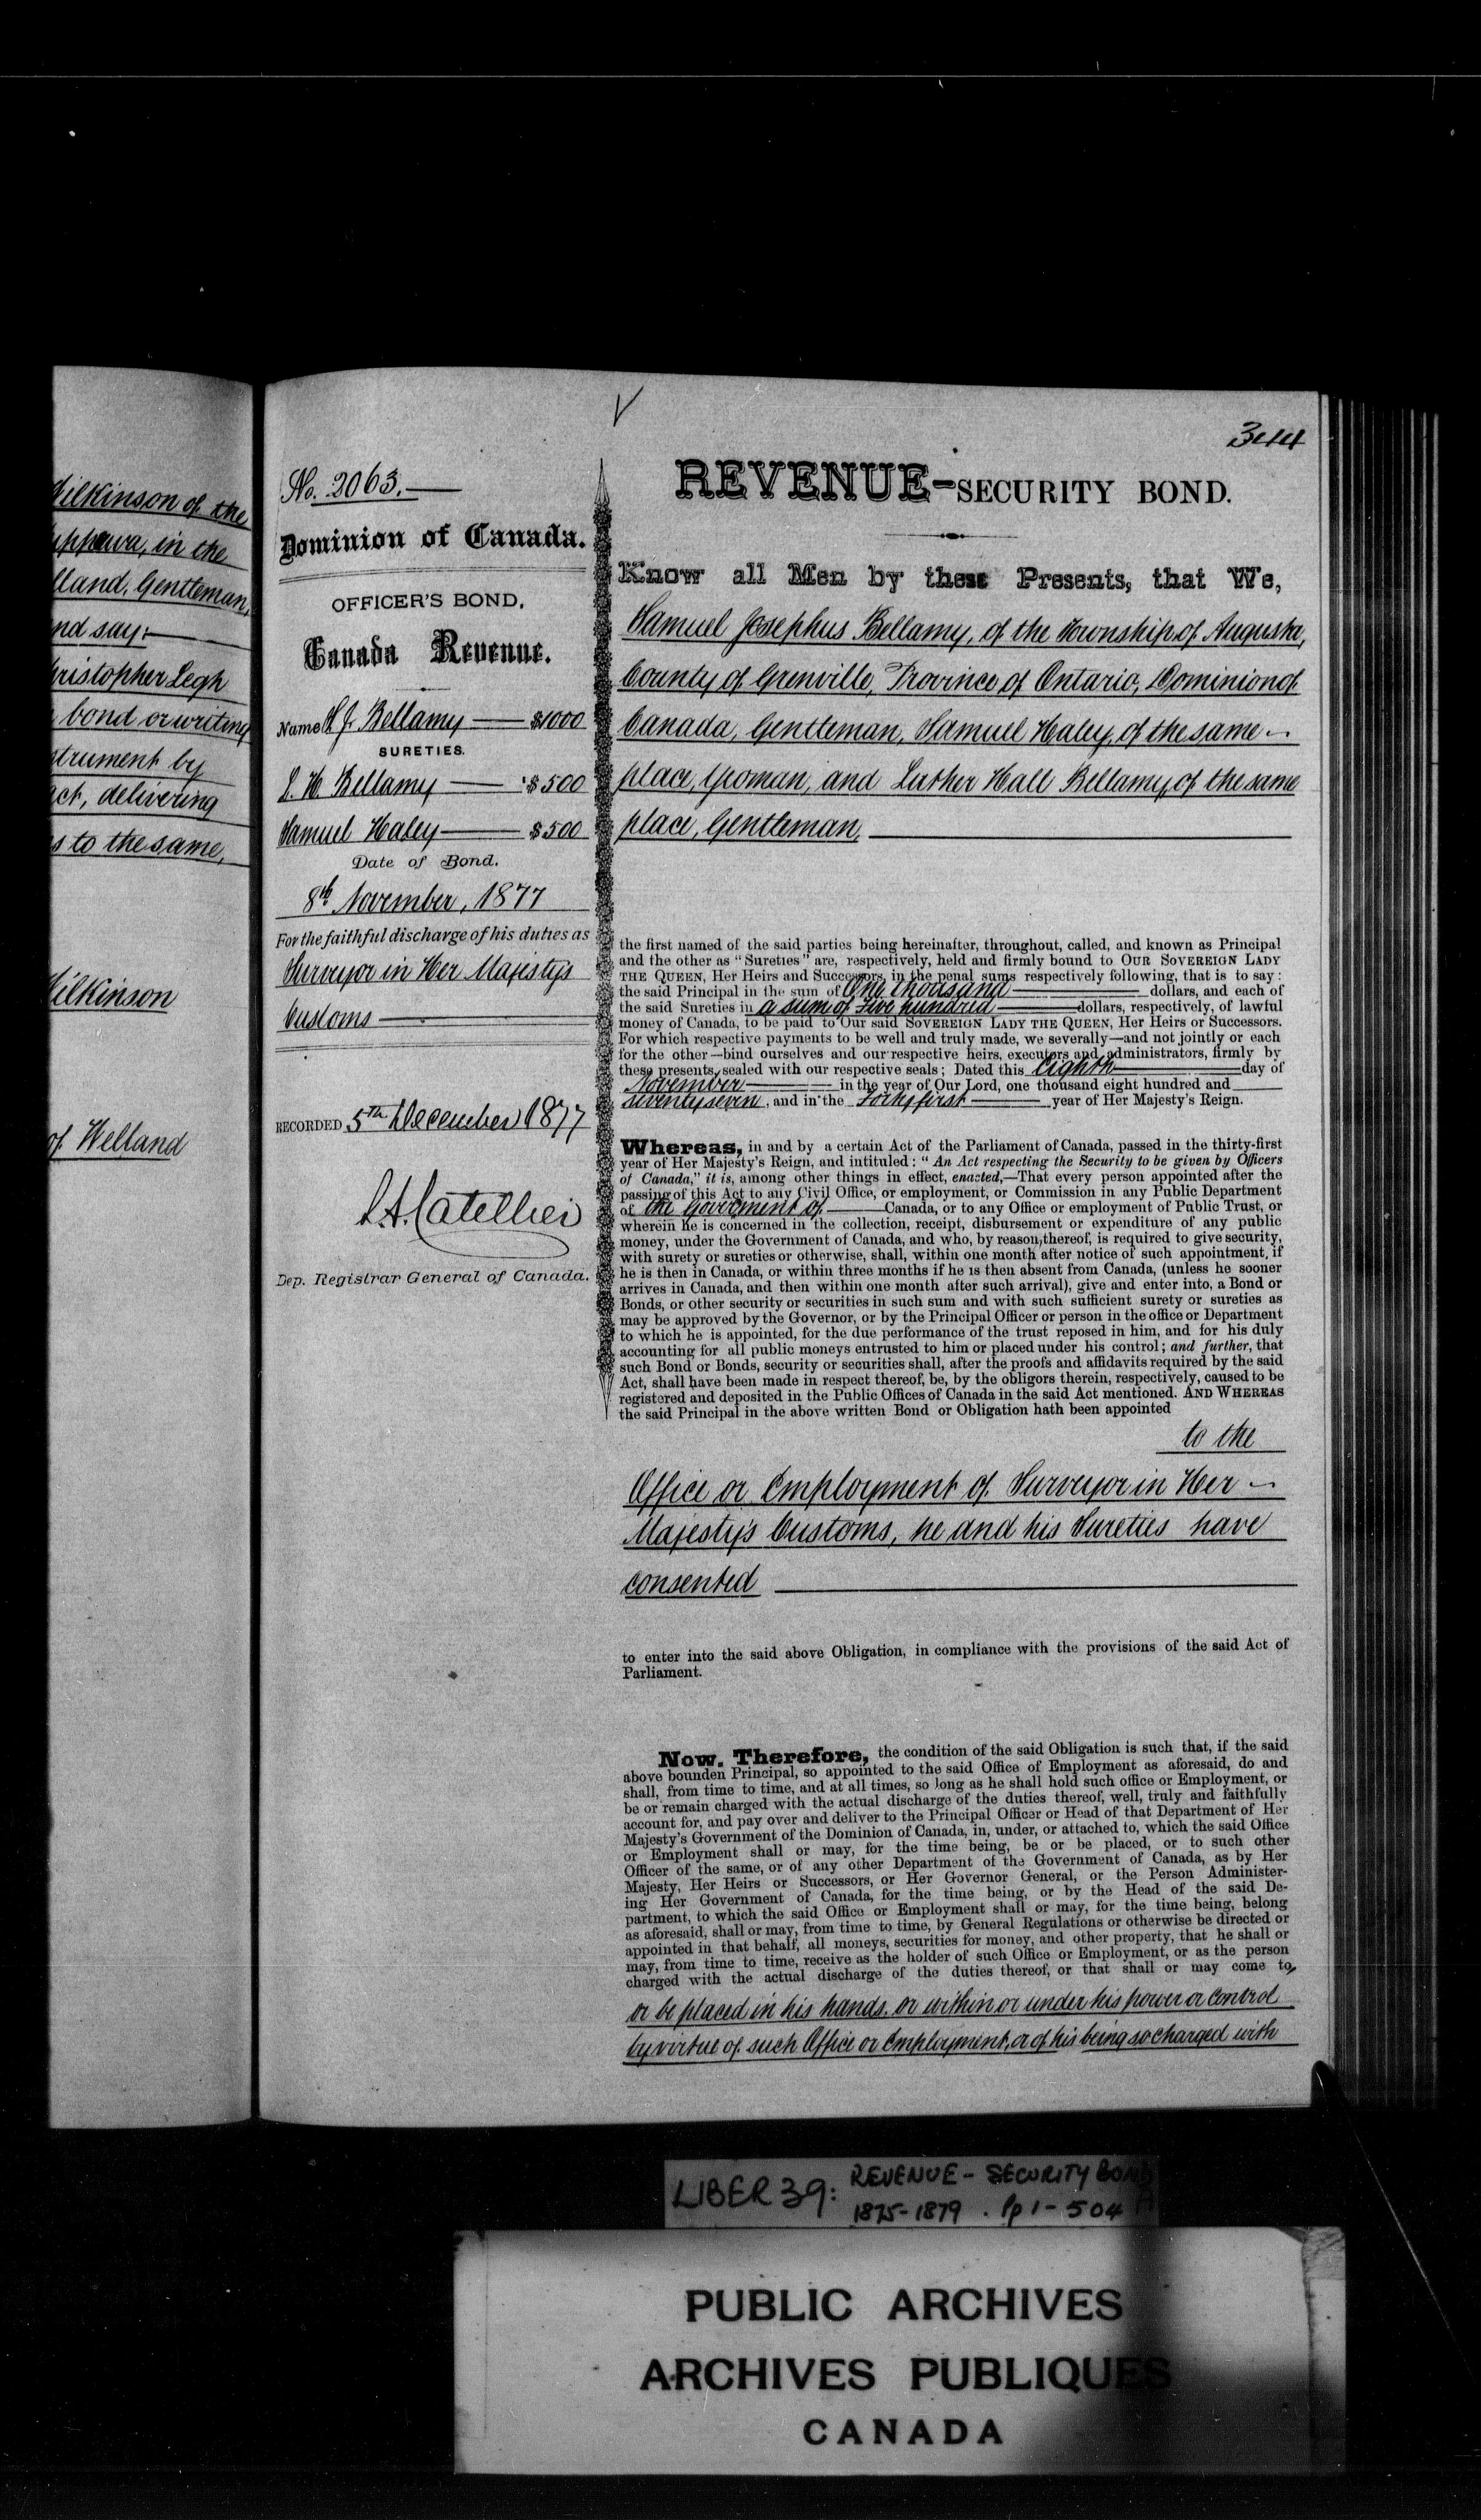 Wilkinson of the
ippawa, in the
lland, Gentleman,
nd say:
hristopher Legh
bond or writing
trument by
act, delivering
s to the same,
Wilkinson
of Welland
344
No. 2063.
Dominion of Canada.
OFFICER'S BOND,
Canada Revenue.
Name S. J. Bellamy $1000
SURETIES.
L. H. Bellamy $500
Samuel Haley $500
Date of Bond.
8th November, 1877
For the faithful discharge of his duties as
Surveyor in Her Majesty's
Customs
RECORDED 5th December 1877
L. A. Catellier
Dep. Registrar General of Canada.
REVENUE-SECURITY BOND.
Know all Men by these Presents, that We,
Samuel Josephus Bellamy, of the Township of Augusta,
County of Grenville, Province of Ontario, Dominion of
Canada, Gentleman, Samuel Haley, of the same
place, Yeoman, and Luther Hall Bellamy, of the same
place, Gentleman,
the first named of the said parties being hereinafter, throughout, called, and known as Principal
and the other as "Sureties" are, respectively, held and firmly bound to OUR SOVEREIGN LADY
THE QUEEN, Her Heirs and Successors, in the penal sums respectively following, that is to say:
the said Principal in the sum of One thousand dollars, and each of
the said Sureties in a sum of Five hundred dollars, respectively, of lawful
money of Canada, to be paid to Our said SOVEREIGN LADY THE QUEEN, Her Heirs or Successors.
For which respective payments to be well and truly made, we severally—and not jointly or each
for the other—bind ourselves and our respective heirs, executors and administrators, firmly by
these presents, sealed with our respective seals; Dated this Eighth day of
November in the year of Our Lord, one thousand eight hundred and
seventy seven, and in the Forty first year of Her Majesty's Reign.
Whereas, in and by a certain Act of the Parliament of Canada, passed in the thirty-first
year of Her Majesty's Reign, and intituled: "An Act respecting the Security to be given by Officers
of Canada," it is, among other things in effect, enacted,—That every person appointed after the
passing of this Act to any Civil Office, or employment, or Commission in any Public Department
of the Government of Canada, or to any Office or employment of Public Trust, or
wherein he is concerned in the collection, receipt, disbursement or expenditure of any public
money, under the Government of Canada, and who, by reason thereof, is required to give security,
with surety or sureties or otherwise, shall, within one month after notice of such appointment, if
he is then in Canada, or within three months if he is then absent from Canada, (unless he sooner
arrives in Canada, and then within one month after such arrival), give and enter into, a Bond or
Bonds, or other security or securities in such sum and with such sufficient surety or sureties as
may be approved by the Governor, or by the Principal Officer or person in the office or Department
to which he is appointed, for the due performance of the trust reposed in him, and for his duly
accounting for all public moneys entrusted to him or placed under his control; and further, that
such Bond or Bonds, security or securities shall, after the proofs and affidavits required by the said
Act, shall have been made in respect thereof, be, by the obligors therein, respectively, caused to be
registered and deposited in the Public Offices of Canada in the said Act mentioned. AND WHEREAS
the said Principal in the above written Bond or Obligation hath been appointed
to the
Office or Employment of Surveyor in Her
Majesty's Customs, he and his Sureties have
consented
to enter into the said above Obligation, in compliance with the provisions of the said Act of
Parliament.
Now, Therefore, the condition of the said Obligation is such that, if the said
above bounden Principal, so appointed to the said Office of Employment as aforesaid, do and
shall, from time to time, and at all times, so long as he shall hold such office or Employment, or
be or remain charged with the actual discharge of the duties thereof, well, truly and faithfully
account for, and pay over and deliver to the Principal Officer or Head of that Department of Her
Majesty's Government of the Dominion of Canada, in, under, or attached to, which the said Office
or Employment shall or may, for the time being, be or be placed, or to such other
Officer of the same, or of any other Department of the Government of Canada, as by Her
Majesty, Her Heirs or Successors, or Her Governor General, or the Person Administer-
ing Her Government of Canada, for the time being, or by the Head of the said De-
partment, to which the said Office or Employment shall or may, for the time being, belong
as aforesaid, shall or may, from time to time, by General Regulations or otherwise be directed or
appointed in that behalf, all moneys, securities for money, and other property, that he shall or
may, from time to time, receive as the holder of such Office or Employment, or as the person
charged with the actual discharge of the duties thereof, or that shall or may come to,
or be placed in his hands, or within or under his power or control
by virtue of such Office or Employment, or of his being so charged with
LIBER 39: REVENUE - SECURITY BONDS
1875-1879. Pp 1-504 A
PUBLIC ARCHIVES
ARCHIVES PUBLIQUES
CANADA